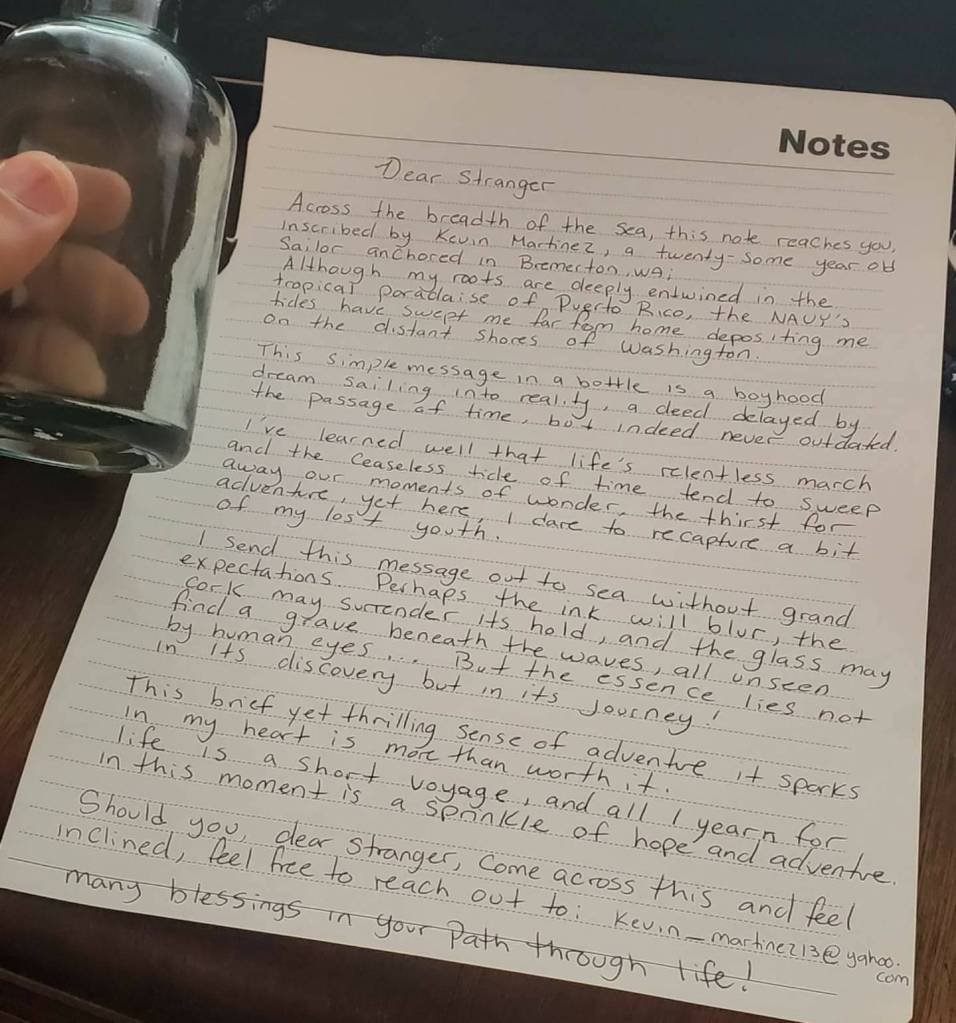 Notes
Dear Stranger
Across the breadth of the Sea, this note reaches you,
inscribed by Kevin Martinez, a twenty-some year old
Sailor anchored in Bremerton, WA;
Although my roots are deeply entwined in the
tropical paradaise of Puerto Rico, the NAVY's
tides have swept me far from home depositing me
on the distant shores of Washington.
This simple message in a bottle is a boyhood
dream sailing into reality, a deed delayed by
the passage of time, but indeed never outdated.
I've learned well that life's relentless march
and the ceaseless tide of time tend to sweep
away our moments of wonder, the thirst for
adventure, yet here, I dare to recapture a bit
of my lost youth.
I send this message out to sea without grand
expectations. Perhaps the ink will blur, the
cork may surrender its hold, and the glass may
find a grave beneath the waves, all unseen
by human eyes... But the essence lies not
in its discovery but in its journey!
This brief yet thrilling sense of adventre it sparks
in my heart is more than worth it.
life is a short voyage, and all I yearn for
in this moment is a sprinkle of hope and adventre.
Should you, dear stranger, come across this and feel
inclined, feel free to reach out to: Kevin_martinez13@yahoo.
com
many blessings in your Path through life!